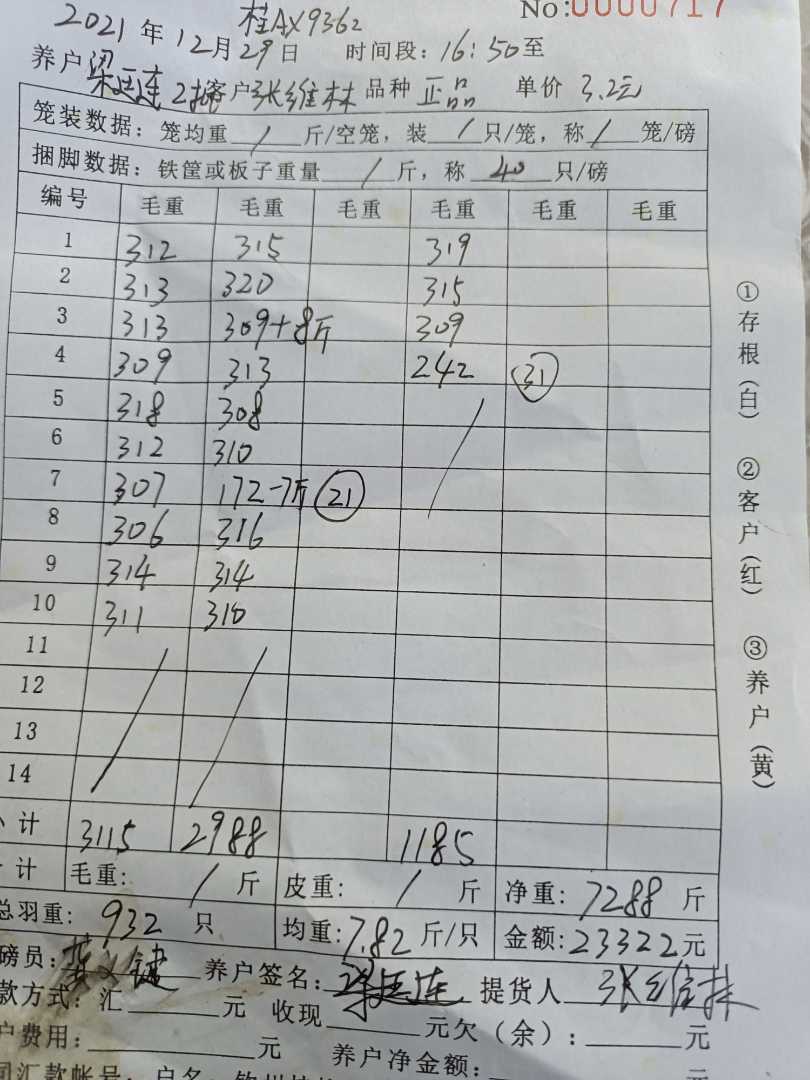 桂AX9362 No:0000717
2021年12月29日 时间段: 16:50至
养户梁廷连 2批 客户张维林 品种 正品 单价 3.2元
笼装数据: 笼均重 / 斤/空笼, 装 / 只/笼, 称 / 笼/磅
捆脚数据: 铁筐或板子重量 / 斤, 称 40 只/磅
编号 毛重 毛重 毛重 毛重 毛重 毛重
1 312 315 319
2 313 320 315
3 313 309+8斤 309
4 309 313 242 31
5 318 308
6 312 310
7 307 172-7斤 21
8 306 316
9 314 314
10 311 310
11
12
13
14
小计 3115 2988 1185
计 毛重: / 斤 皮重: / 斤 净重: 7288 斤
总羽重: 932 只 均重: 7.82 斤/只 金额: 23322元
磅员: 养户签名: 梁廷连 提货人 张维林
款方式: 汇 元 收现 元欠(余): 元
户费用: 元 养户净金额: 元
汇款帐号: 户名:
①存根(白) ②客户(红) ③养户(黄)